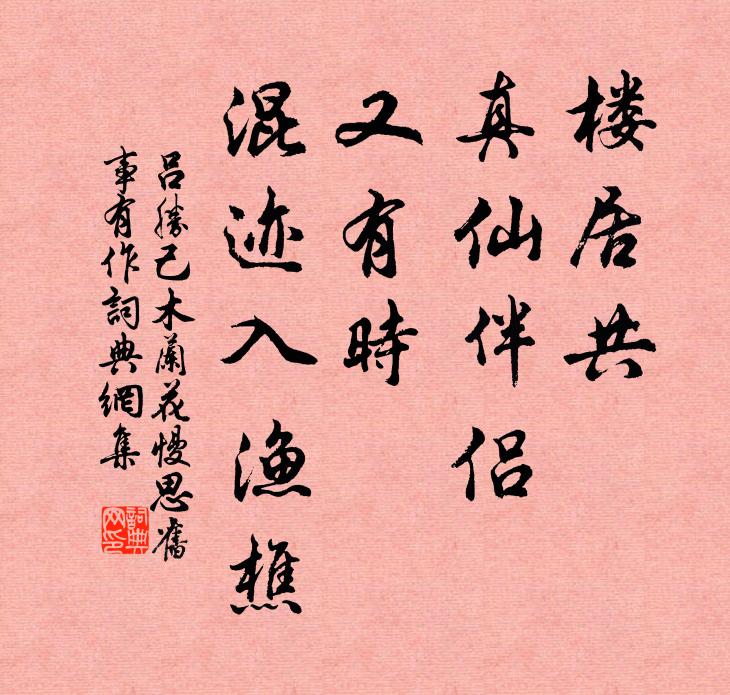 楼居共
真仙伴侣
又有時
混迹入渔樵
吕勝己木蘭花慢思舊
事有作詞典網集
詞典網印